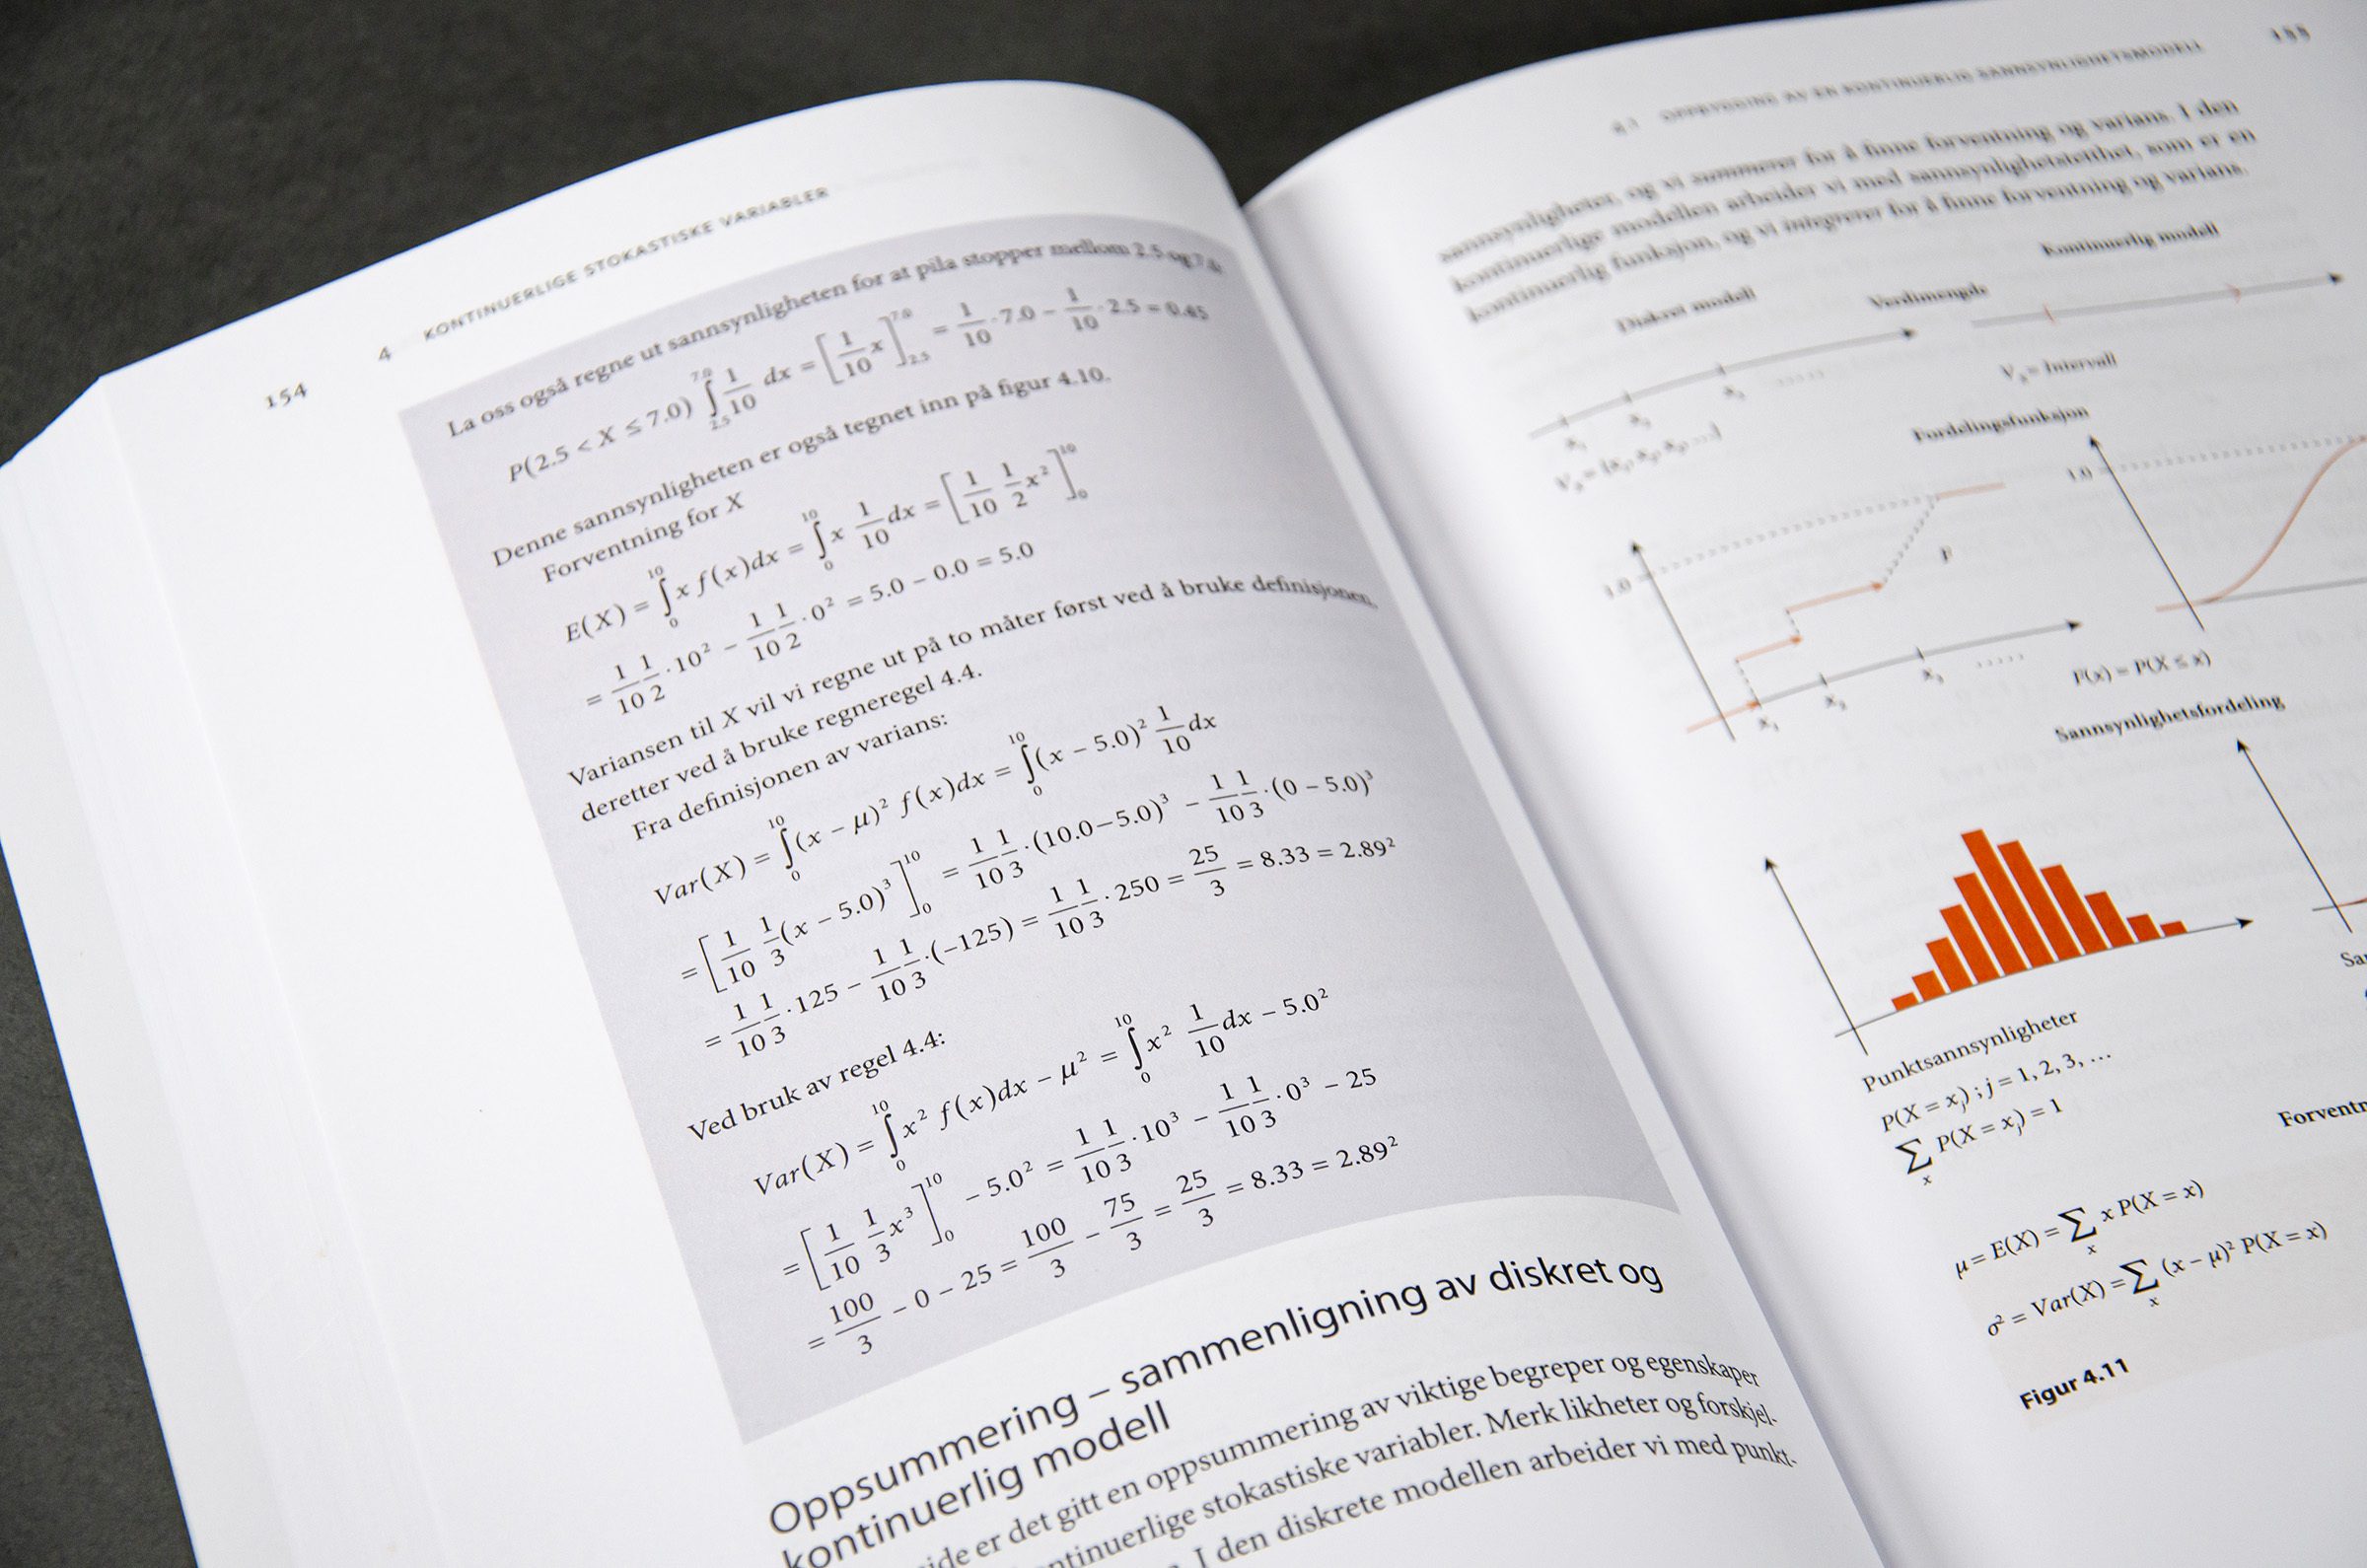 154
4 KONTINUERLIGE STOKASTISKE VARIABLER
La oss også regne ut sannsynligheten for at pila stopper mellom 2.5 og 7.
P(2.5 < X ≤ 7.0) ∫_{2.5}^{7.0} 1/10 dx = [1/10 x]_{2.5}^{7.0} = 1/10 · 7.0 − 1/10 · 2.5 = 0.45
Denne sannsynligheten er også tegnet inn på figur 4.10.
Forventning for X
E(X) = ∫_0^{10} x f(x)dx = ∫_0^{10} x 1/10 dx = [1/10 1/2 x²]_0^{10}
= 1/10 1/2 · 10² − 1/10 1/2 · 0² = 5.0 − 0.0 = 5.0
Variansen til X vil vi regne ut på to måter først ved å bruke definisjonen,
deretter ved å bruke regneregel 4.4.
Fra definisjonen av varians:
Var(X) = ∫_0^{10} (x − μ)² f(x)dx = ∫_0^{10} (x − 5.0)² 1/10 dx
= [1/10 1/3 (x − 5.0)³]_0^{10} = 1/10 1/3 · (10.0−5.0)³ − 1/10 1/3 · (0 − 5.0)³
= 1/10 1/3 · 125 − 1/10 1/3 · (−125) = 1/10 1/3 · 250 = 25/3 = 8.33 = 2.89²
Ved bruk av regel 4.4:
Var(X) = ∫_0^{10} x² f(x)dx − μ² = ∫_0^{10} x² 1/10 dx − 5.0²
= [1/10 1/3 x³]_0^{10} − 5.0² = 1/10 1/3 · 10³ − 1/10 1/3 · 0³ − 25
= 100/3 − 0 − 25 = 100/3 − 75/3 = 25/3 = 8.33 = 2.89²
Oppsummering – sammenligning av diskret og
kontinuerlig modell
er det gitt en oppsummering av viktige begreper og egenskaper
kontinuerlige stokastiske variabler. Merk likheter og forskjel-
I den diskrete modellen arbeider vi med punkt-
OPPBYGGING AV EN KONTINUERLIG SANNSYNLIGHETSMODELL 155
sannsynligheter, og vi summerer for å finne forventning og varians. I den
kontinuerlige modellen arbeider vi med sannsynlighetstetthet, som er en
kontinuerlig funksjon, og vi integrerer for å finne forventning og varians.
Diskret modell
Verdimengde
Kontinuerlig modell
x₁ x₂ x₃ .....
Vₓ = {x₁, x₂, x₃, ...}
Vₓ = Intervall
Fordelingsfunksjon
1.0
F
x₁ x₂ x₃ .....
1.0
F(x) = P(X ≤ x)
Sannsynlighetsfordeling
Punktsannsynligheter
P(X = xⱼ) ; j = 1, 2, 3, ...
∑ₓ P(X = xⱼ) = 1
μ = E(X) = ∑ₓ x P(X = x)
σ² = Var(X) = ∑ₓ (x − μ)² P(X = x)
Figur 4.11